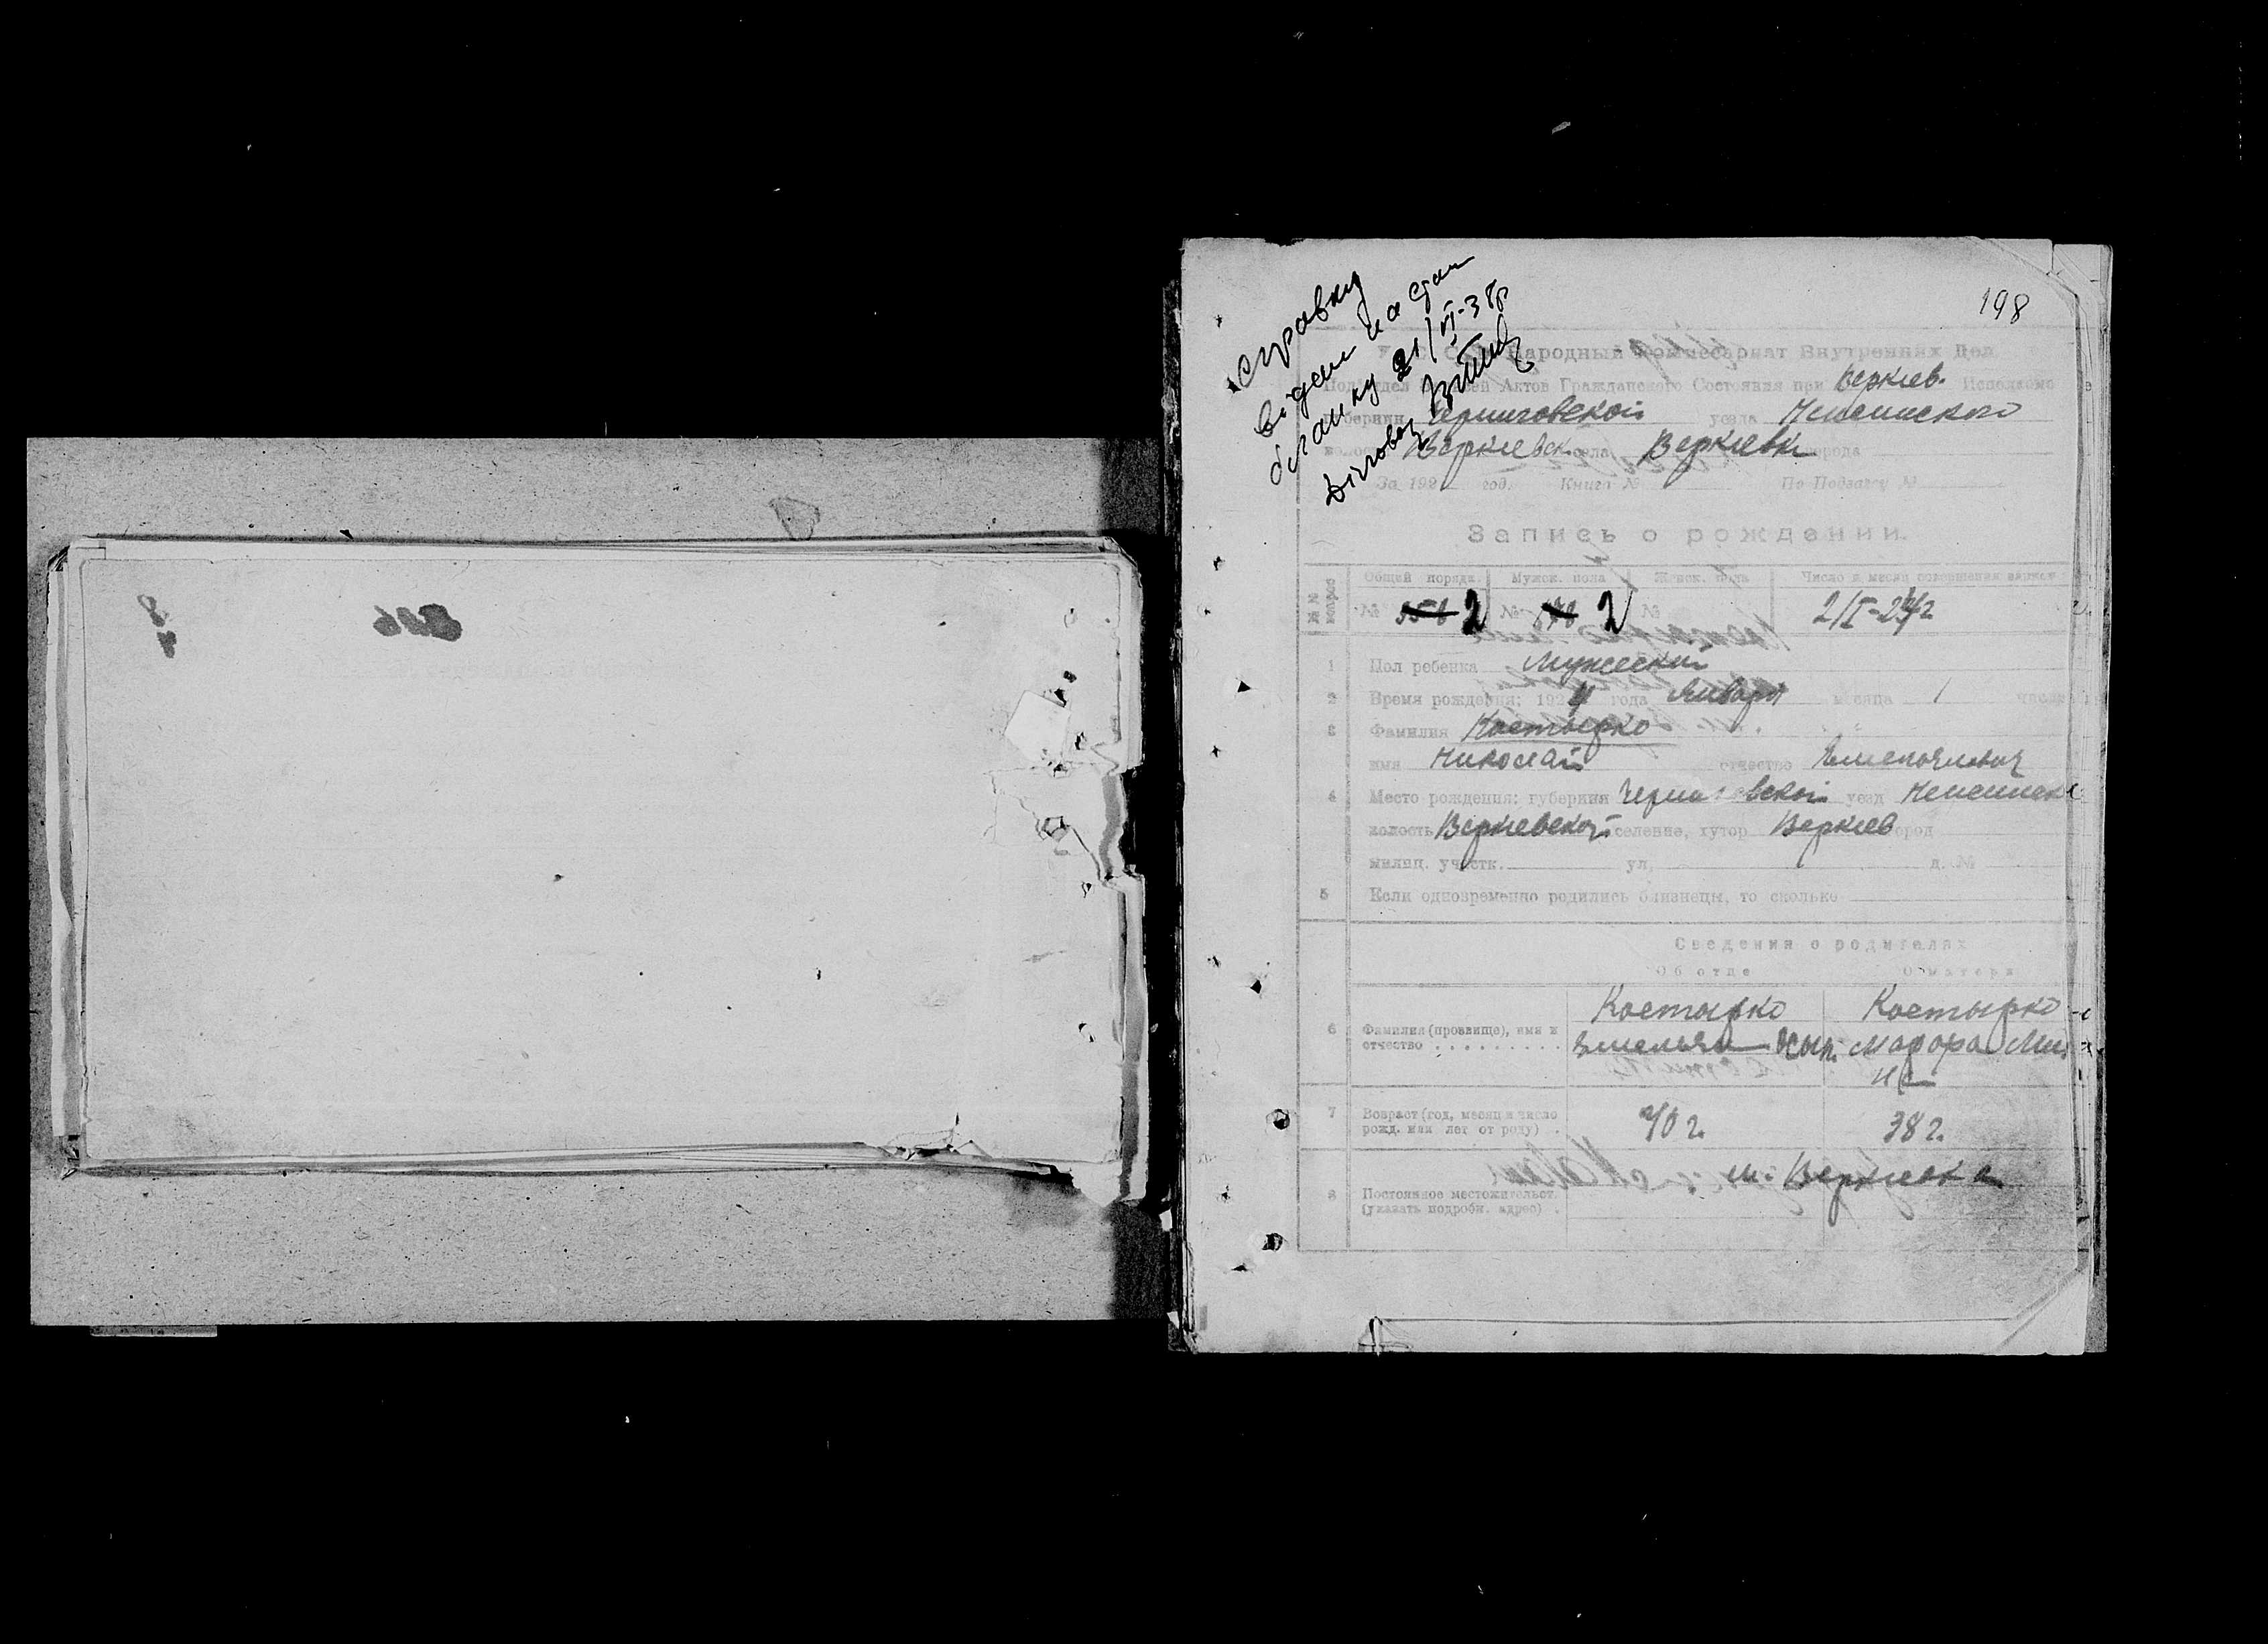 198
справку
видан на
бланку 21/VI-38р
У. С. С. Р. Народный Комиссариат Внутренних Дел
Подотдел Записей Актов Гражданского Состояния при Веркиев. Исполкоме
губернии Черниговской уезда Неженского
волости Веркиевск. села Веркиевки города
За 192 год. Книга № По Подзагсу №
Запись о рождении.
№№ вопросов Общий порядк. Мужск. пола Женск. пола Число и месяц совершения записи
№ 2 № 2 № 2/I-24 г
1 Пол ребенка Мужеский
2 Время рождения: 1924 года Января месяца 1 числа
3 Фамилия Костырко
имя Николай отчество Емельянович
4 Место рождения: губерния Черниговской уезд Неженск
волость Веркиевской селение, хутор Веркиев город
милиц. участк. ул. д. №
5 Если одновременно родились близнецы, то сколько
Сведения о родителях
Об отце О матери
6 Фамилия (прозвище), имя и отчество Костырко Костырко
Емельян Осип.
7 Возраст (год, месяц и число рожд. или лет от роду) 40 г. 38 г.
8 Постоянное местожительст. (указать подробн. адрес) м. Веркиевка